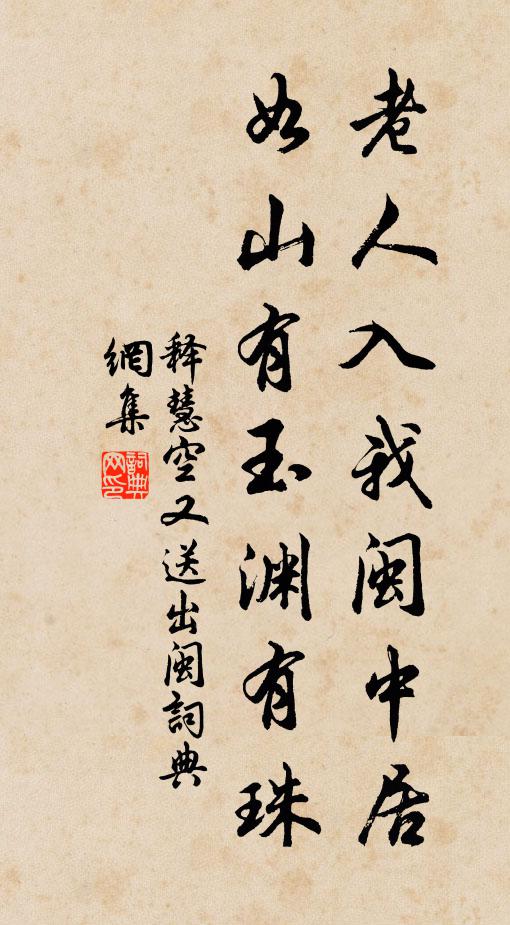 老人入我閩中居
如山有玉渊有珠
释慧空又送出閩詞典
網集
詞典网印